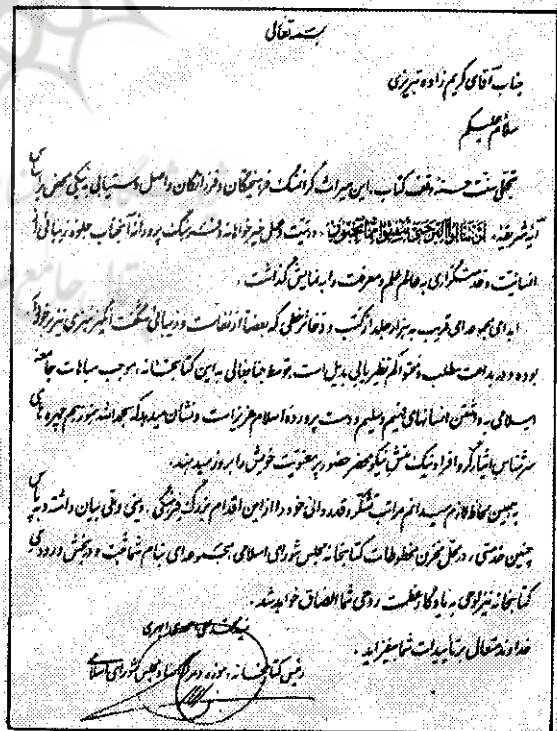 بسمه تعالی
جناب آقای کریم زاده تبریزی
سلام علیکم
تجلی سنت حسنه وقف کتاب، این میراث گرانسنگ فرهیختگان و فرزانگان و اصل دستیابی به نیکی محض بر پایه
آیه شریفه، لن تنالوا البر حتی تنفقوا مما تحبون، در نیت و عمل خیرخواهانه و فرهنگ پرورانه آنجناب جلوه زیبائی از
انسانیت و خدمتگزاری به عالم علم و معرفت را به نمایش گذاشت.
اهدای مجموعه‌ای قریب به هزار جلد از کتب و ذخائر خطی که بعضاً از نفاست و زیبائی شگفت انگیز هنری نیز برخوردار
بوده و در بداعت مطلب و محتوا کم نظیر یا بی بدیل است، توسط جنابعالی به این کتابخانه، موجب مباهات جامعه
اسلامی به داشتن انسانهای فهیم و سلیم و دست پرورده اسلام عزیز است و نشان میدهد که بحمدالله هنوز هم چهره های
سرشناس ایثارگر و افراد نیک منش نیکو محضر حضور پر معنویت خویش را بروز میدهند.
به همین لحاظ لازم میدانم مراتب تشکر و قدردانی خود را از این اقدام بزرگ فرهنگی، دینی و ملی بیان داشته و به پاس
چنین خدمتی، در محل مخزن مخطوطات کتابخانه مجلس شورای اسلامی مجموعه‌ای بنام شما ثبت و در بخش ورودی
کتابخانه نیز لوحی به یادگار عظمت روحی شما الصاق خواهد شد.
خداوند متعال بر تأییدات شما بیفزاید.
سید محمد علی احمدی ابهری
رئیس کتابخانه، موزه و مرکز اسناد مجلس شورای اسلامی